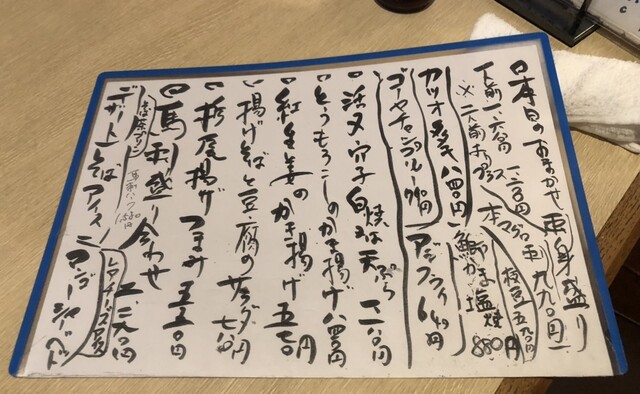 本日のおまかせ 刺身盛り
一人前 一、六〇〇円
※二人前よりプラス 一、二〇〇円
本マグロ 九九〇円
枝豆 五九〇円
カツオ 八四〇円
鰤かま塩焼 880円
ゴーヤチャンプルー 790円
アジフライ 640円
活〆穴子 白焼 又は 天ぷら 一、二八〇円
とうもろこしのかき揚げ 八四〇円
紅生姜のかき揚げ 五七〇円
揚げそばと豆腐のサラダ 七〇〇円
栃尾揚げ つまみ 五五〇円
馬刺盛り合わせ 二、二九〇円
そば茶プリン
デザート そばアイス
マンゴーシャーベット
レアチーズ